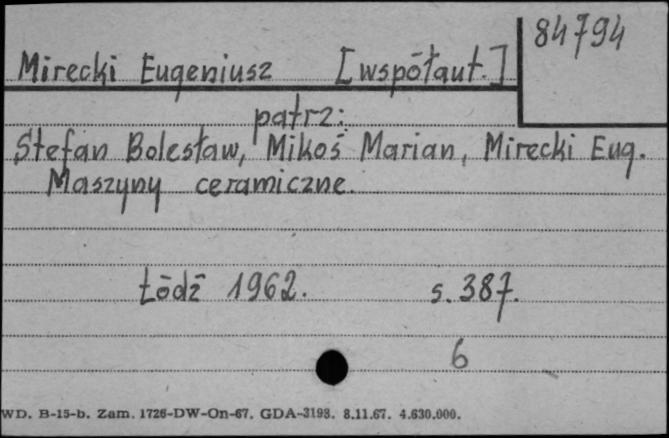 84794
Mirecki Eugeniusz [współaut.]
patrz:
Stefan Bolesław, Mikoś Marian, Mirecki Eug.
Maszyny ceramiczne.
Łódź 1962. s. 387.
6
WD. B-15-b. Zam. 1726-DW-On-67. GDA-3198. 8.11.67. 4.630.000.